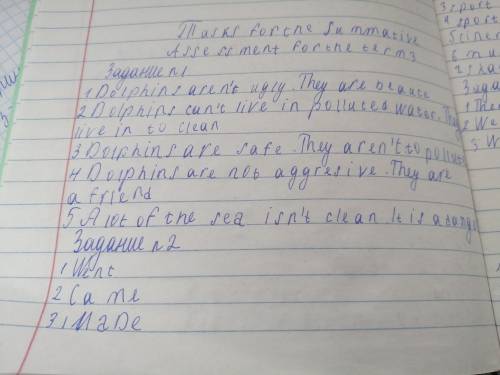 Tasks for the Summative
Assessment for the term 3
Задание №1
1 Dolphins aren't ugly. They are beaute
2 Dolphins can't live in polluted water. They
live in to clean
3 Dolphins are safe. They aren't to pollut
4 Dolphins are not aggresive. They are
a friend
5 A lot of the sea isn't clean It is a dange
Задание №2
1 Went
2 Came
3 Made
3 sport
4 sport